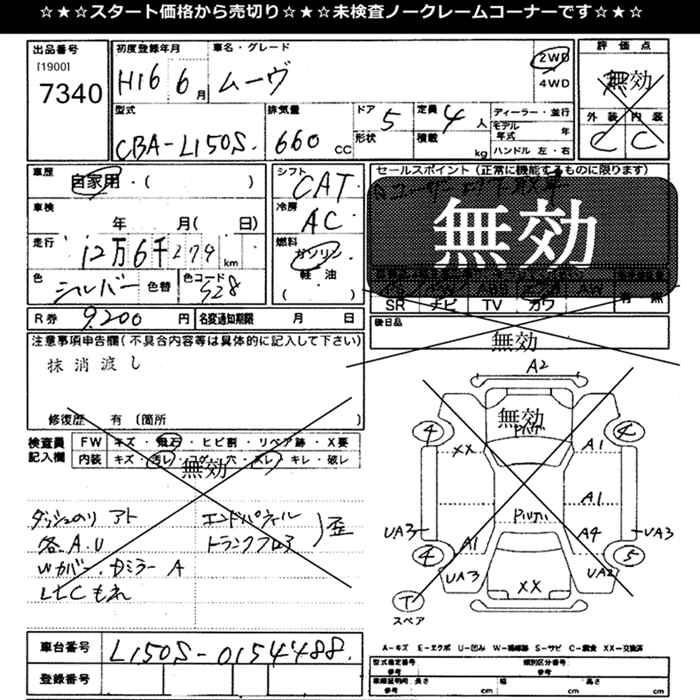 ☆★☆スタート価格から売切り☆★☆未検査ノークレームコーナーです☆★☆
出品番号 初度登録年月 車名・グレード 2WD 評価点
[1900]
7340 H16 6月 ムーヴ 4WD 無効
型式 排気量 ドア 5 定員 4人 ディーラー・並行 外装 内装
CBA-L150S. 660cc 形状 積載 kg モデル年式 年 C C
ハンドル 左・右
車歴 自家用・( ) シフト CAT セールスポイント(正常に機能するものに限ります)
車検 年 月( 日) 冷房 AC 無効
走行 12万6千279km 燃料 ガソリン
色 シルバー 色替 色コード S28 軽油 SR ナビ TV カワ 有 無
( )
R券 9,200円 名変通知期限 月 日 後日品
無効
注意事項申告欄(不具合内容等は具体的に記入して下さい)
抹消渡し
修復歴 有 (箇所
検査員 FW キズ・飛石・ヒビ割・リペア跡・X要
記入欄 内装 キズ・汚レ・コゲ・穴・スレ・キレ・破レ
無効
ダッシュのり アト エンドパネル
各A.U トランクフロア 歪
Wカバー.Dミラー A
LLCもれ
A2
無効
4 4
XX A1
A1
UA3 A1 A4 UA3
4 5
UA3 XX UA2
T
スペア
車台番号 L150S-0154488.
登録番号
A-キズ E-エクボ U-凹み W-補修跡 S-サビ C-腐食 XX-交換済
型式指定番号 類別区分番号
参考 参考
車輌証明 長さ 幅 高さ
参考 cm cm cm